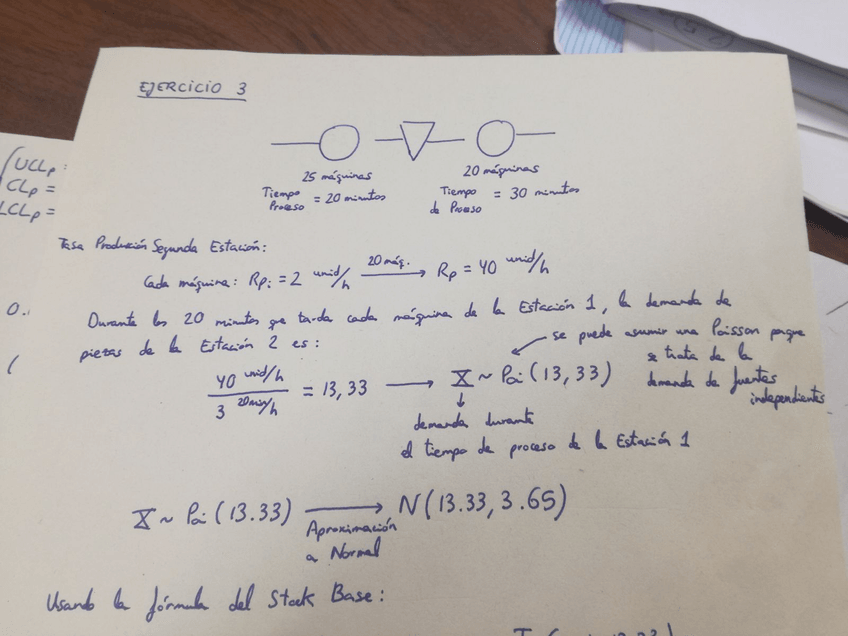 EJERCICIO 3
25 máquinas
Tiempo Proceso = 20 minutos
20 máquinas
Tiempo de Proceso = 30 minutos
UCLp :
CLp =
LCLp =
Tasa Producción Segunda Estación:
Cada máquina: Rpi = 2 unid/h 20 máq. → Rp = 40 unid/h
0.
Durante los 20 minutos que tarda cada máquina de la Estación 1, la demanda de
piezas de la Estación 2 es:
se puede asumir una Poisson porque
se trata de la
demanda de fuentes
independientes
40 unid/h / 3 20min/h = 13,33 → X ~ Poi (13,33)
demanda durante
el tiempo de proceso de la Estación 1
X ~ Poi (13.33) → N(13.33, 3.65)
Aproximación
a Normal
Usando la fórmula del Stock Base: